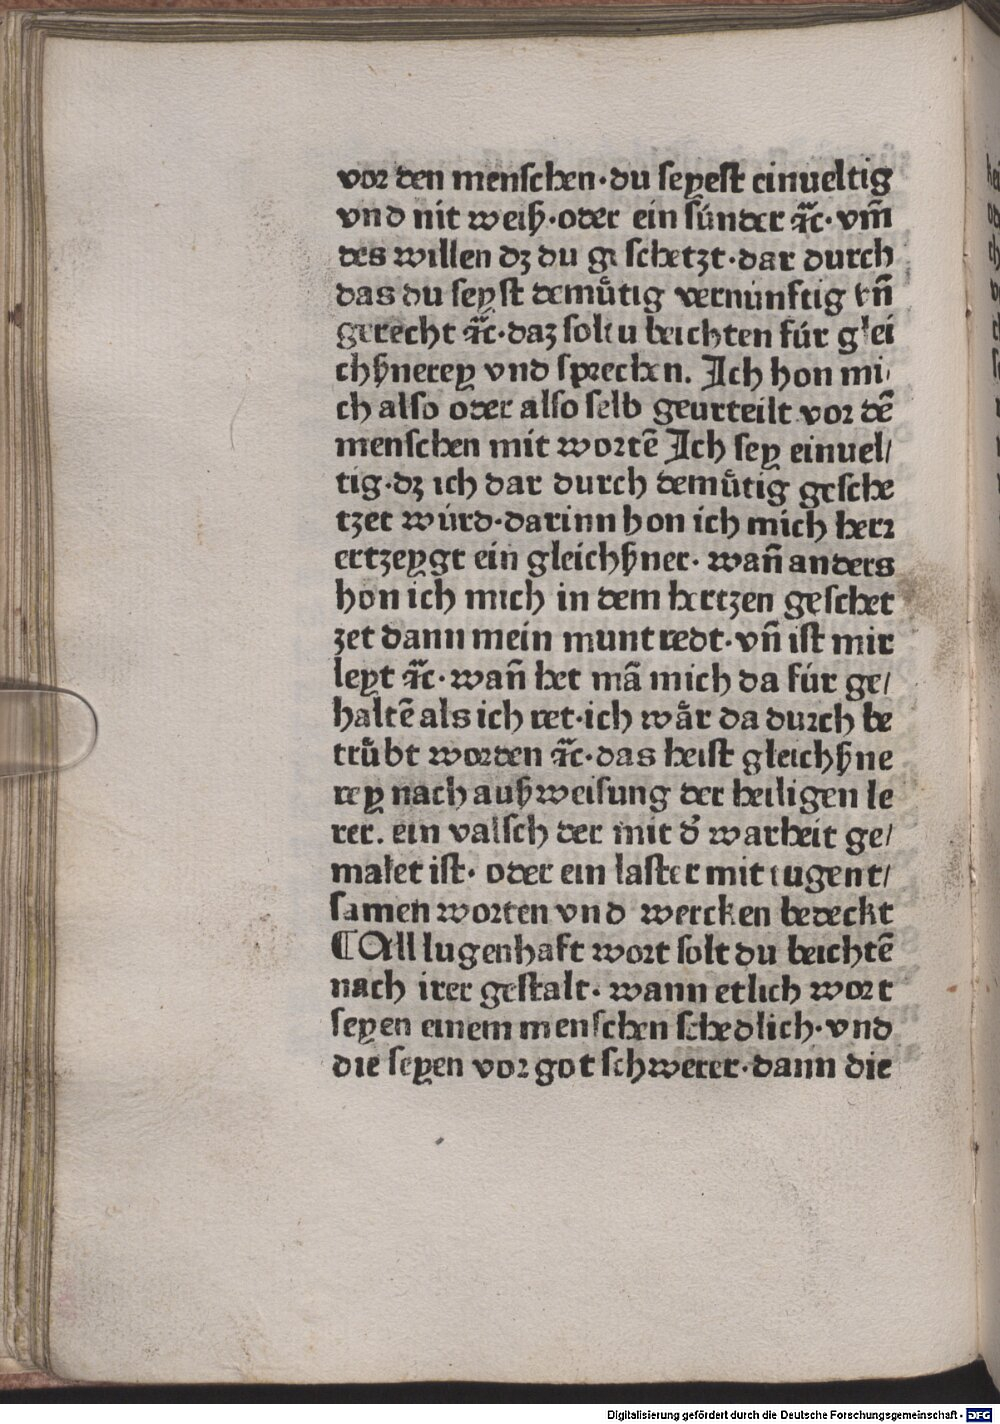 vor den menschen·du seyest einueltig
vnd nit weiß·oder ein sünder ⁊c̃·vm̃
des willen dz du geschetzt·dar durch
das du seyst demuͤtig vernünftig vn̄
gerecht ⁊c̃·daz soltu beichten für glei
chßnerey vnd sprechen. Ich hon mi/
ch also oder also selb geurteilt vor dē
menschen mit wortē Ich sey einuel/
tig·dz ich dar durch demuͤtig gesche
tzet würd·darinn hon ich mich herr
ertzeygt ein gleichßner·wañ anders
hon ich mich in dem hertzen geschet
zet dann mein munt redt·vñ ist mir
leyt ⁊c̃·wañ het mā mich da für ge/
haltē als ich ret·ich waͤr da durch be
truͤbt worden ⁊c̃·das heist gleichßne
rey nach außweisung der heiligen le
rer. ein valsch der mit d̕ warheit ge/
malet ist·oder ein laster mit tugent/
samen worten vnd wercken bedeckt
¶All lugenhaft wort solt du beichtē
nach irer gestalt·wann etlich wort
seyen einem menschen schedlich·vnd
die seyen vor got schwerer·dann die
Digitalisierung gefördert durch die Deutsche Forschungsgemeinschaft - DFG